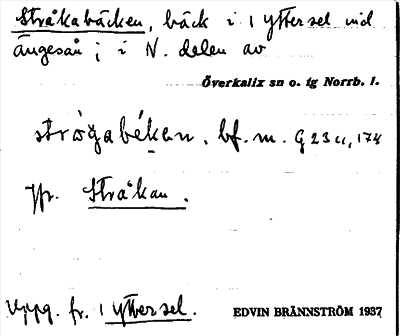 Stråkabäcken, bäck i 1 Yttersel vid
ängesån; i N. delen av
Överkalix sn o. tg Norrb. l.
strògabékan. bf. m. G 23 u, 174
Jfr. Stråkan.
Uppg. fr. 1 Yttersel.
EDVIN BRÄNNSTRÖM 1937